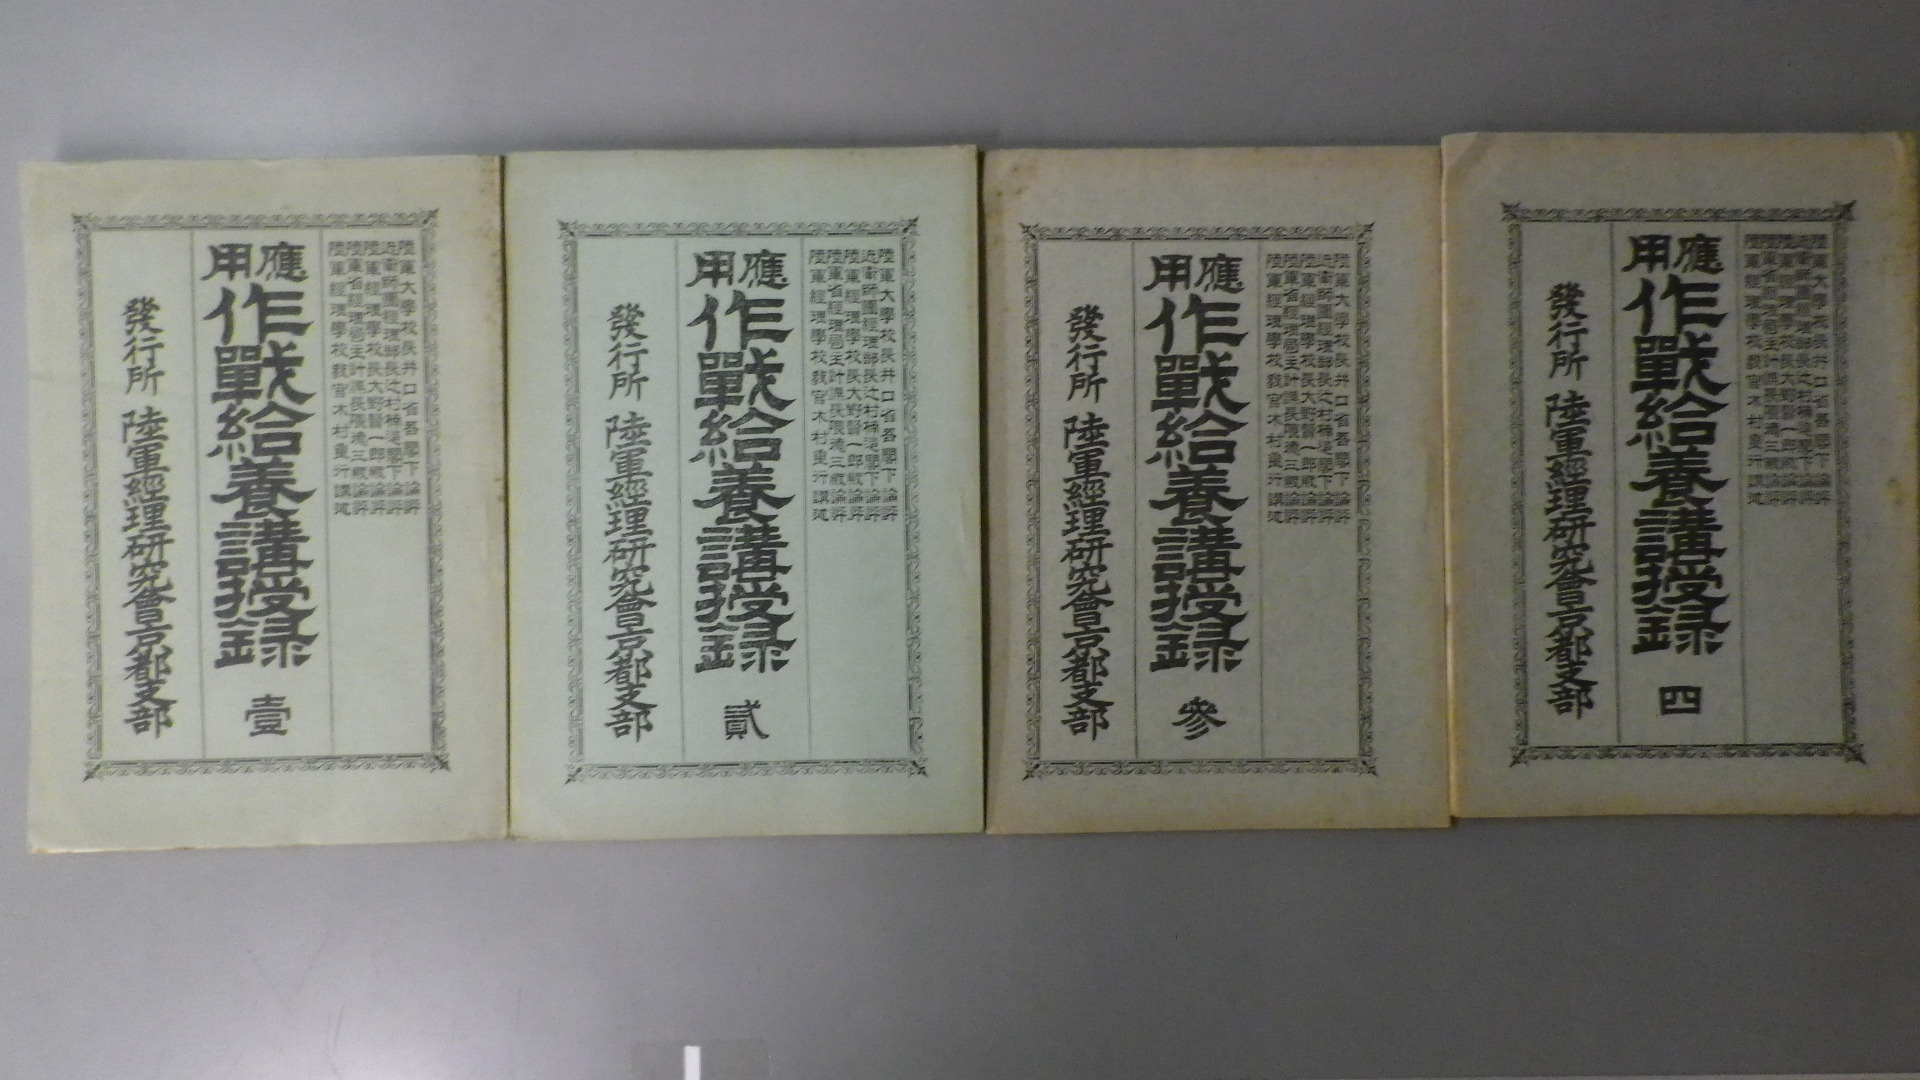 陸軍大學校長井口省吾閣下論評
近衛師團經理部長辻村楠造閣下論評
陸軍經理學校長大野賢一郎殿論評
陸軍省經理局主計課長隈德三殿論評
陸軍經理學校教官木村重行講述
應用
作戰給養講授録
壹
發行所 陸軍經理研究會京都支部
陸軍大學校長井口省吾閣下論評
近衛師團經理部長辻村楠造閣下論評
陸軍經理學校長大野賢一郎殿論評
陸軍省經理局主計課長隈德三殿論評
陸軍經理學校教官木村重行講述
應用
作戰給養講授録
貳
發行所 陸軍經理研究會京都支部
陸軍大學校長井口省吾閣下論評
近衛師團經理部長辻村楠造閣下論評
陸軍經理學校長大野賢一郎殿論評
陸軍省經理局主計課長隈德三殿論評
陸軍經理學校教官木村重行講述
應用
作戰給養講授録
參
發行所 陸軍經理研究會京都支部
陸軍大學校長井口省吾閣下論評
近衛師團經理部長辻村楠造閣下論評
陸軍經理學校長大野賢一郎殿論評
陸軍省經理局主計課長隈德三殿論評
陸軍經理學校教官木村重行講述
應用
作戰給養講授録
四
發行所 陸軍經理研究會京都支部